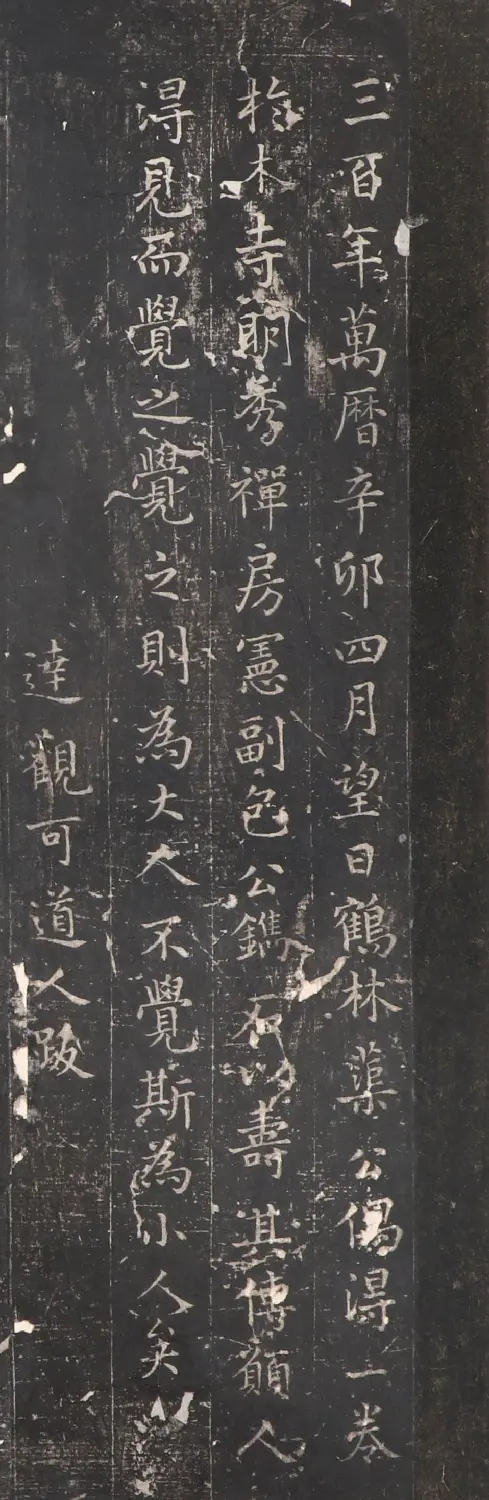 三百年萬曆辛卯四月望日鶴林蕖公偶淂一卷
於木寺朙秀禪房憲副包公鐫石以壽其傳願人
淂見而覺之覺之則為大人不覺斯為小人矣
達觀可道人跋